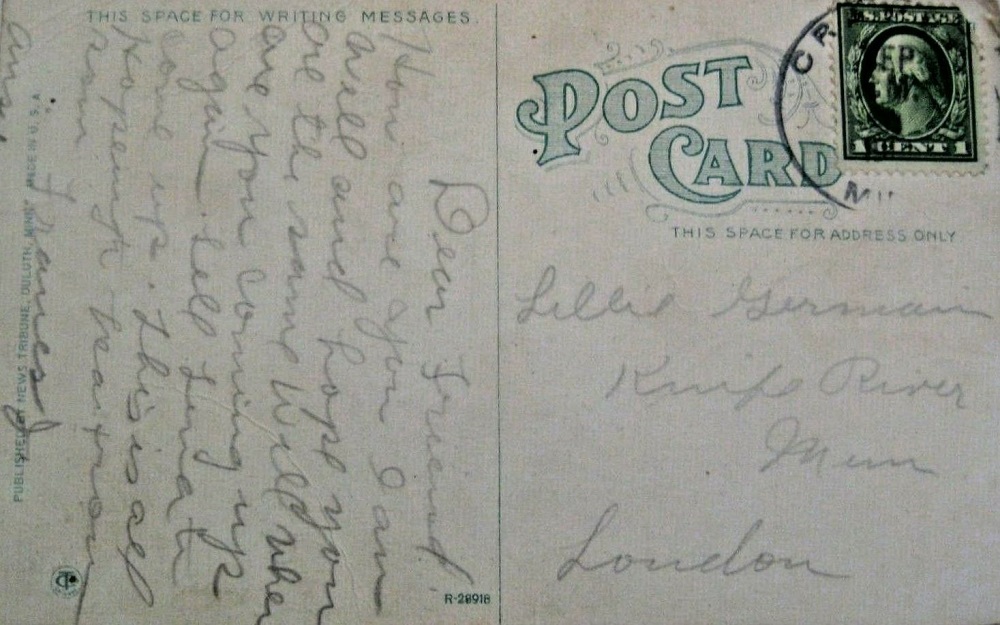 THIS SPACE FOR WRITING MESSAGES.
Dear Friend,
How are you I am
well and hope you
are the same Well when
are you coming up
again. tell
come up. This is all
hopeing to hear from
soon
ans.
PUBLISHED BY NEWS TRIBUNE, DULUTH, MINN. MADE IN U.S.A.
R-28918
POST
CARD
U.S. POSTAGE
1 CENT 1
THIS SPACE FOR ADDRESS ONLY
Lillie Germain
Knife River
Minn
London